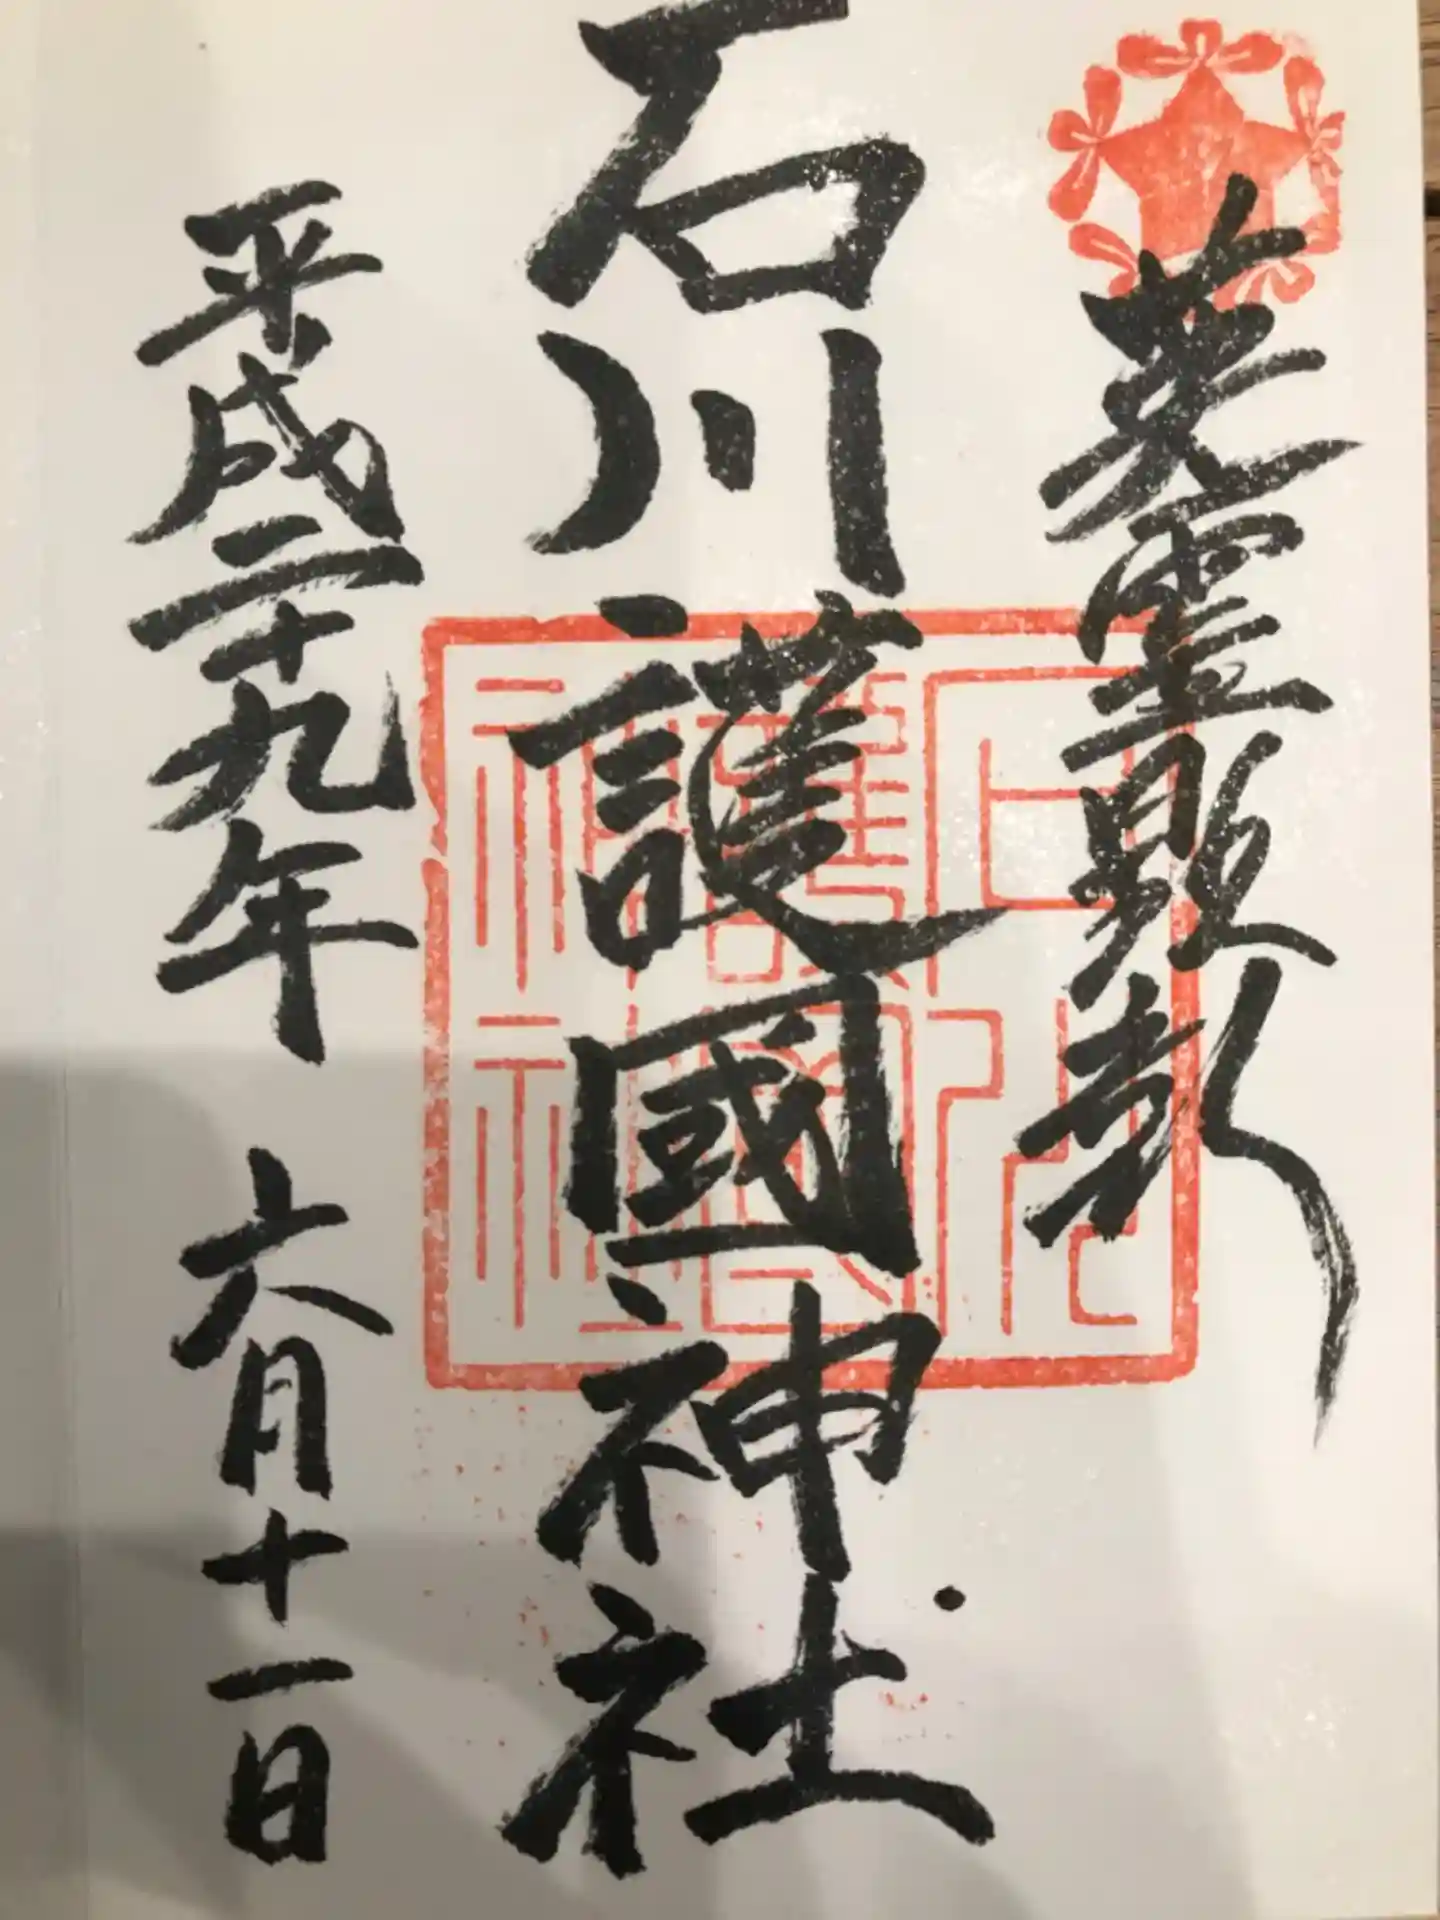 英霊顕彰
石川護國神社
平成二十九年 六月十一日
石川護國神社